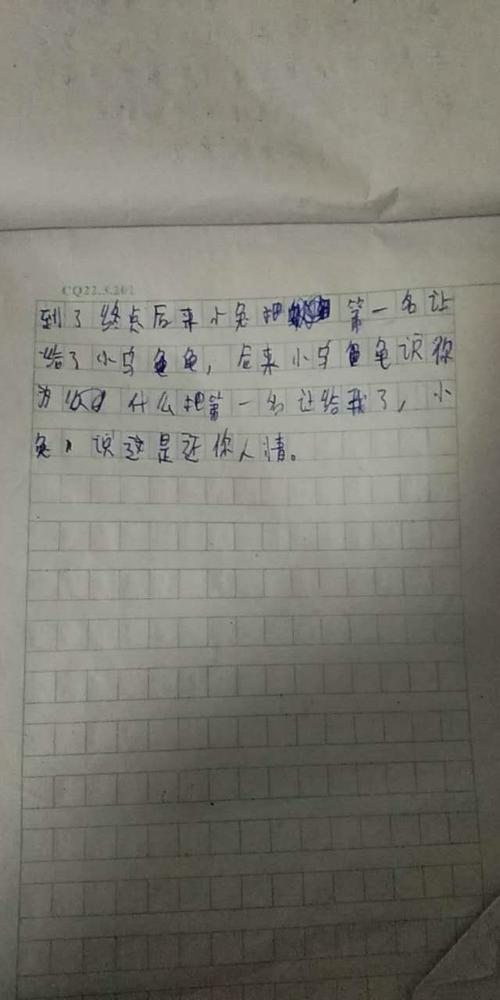 CQ22.5.201
到了终点后来小兔把第一名让
给了小乌龟，后来小乌龟识你
为什么把第一名让给我了，小
兔识这是还你人情。